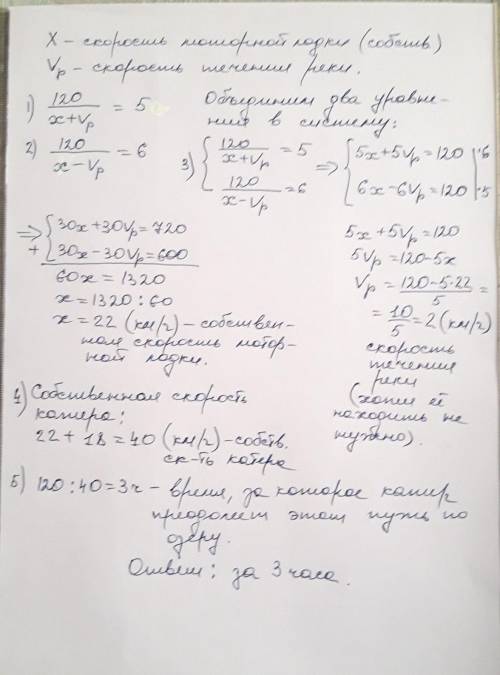 X – скорость моторной лодки (собств)
Vр – скорость течения реки.
1) 120/(x+Vр) = 5
Объединим два уравне-
ния в систему:
2) 120/(x-Vр) = 6
3) { 120/(x+Vр) = 5
120/(x-Vр) = 6
=> { 5x+5Vр=120 |·6
6x-6Vр=120 |·5
=> { 30x+30Vр=720
+ 30x-30Vр=600
60x = 1320
x = 1320:60
x = 22 (км/ч) – собствен-
ная скорость мотор-
ной лодки.
5x+5Vр=120
5Vр=120-5x
Vр = (120-5·22)/5 =
= 10/5 = 2 (км/ч)
скорость
течения
реки
(хотя её
находить не
нужно).
4) Собственная скорость
катера:
22+18=40 (км/ч) – собств.
ск-ть катера
5) 120:40=3ч – время, за которое катер
преодолеет этот путь по
озеру.
Ответ: за 3 часа.